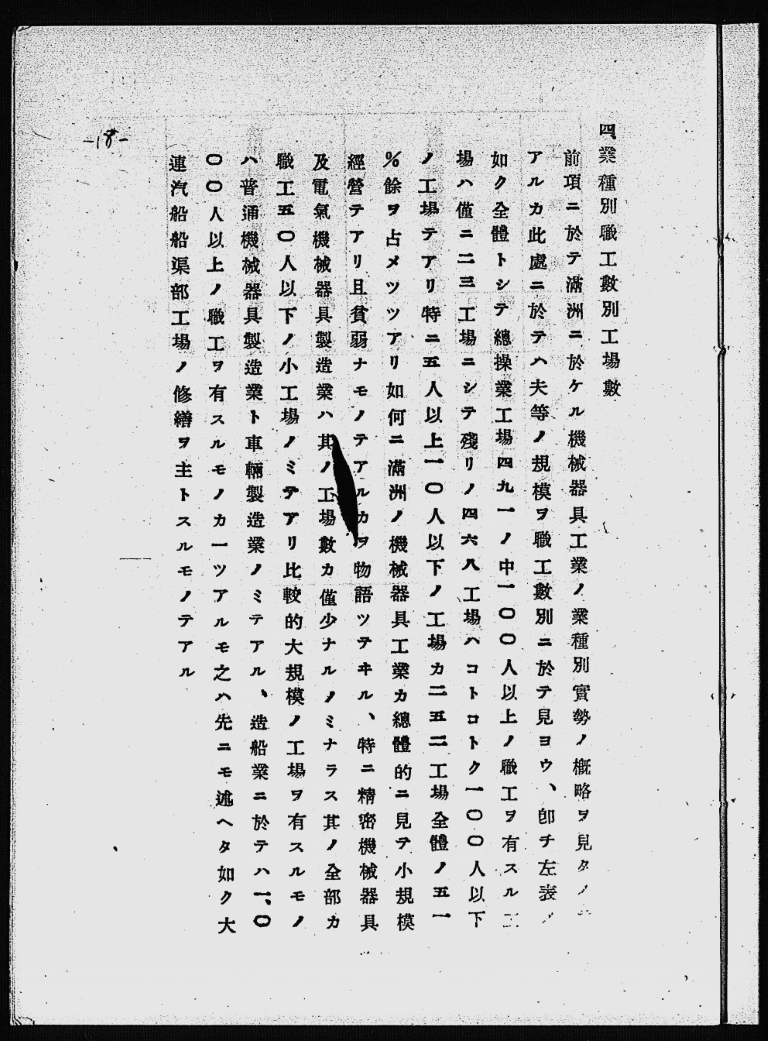 四、業種別職工數別工場數
前項ニ於テ滿洲ニ於ケル機械器具工業ノ業種別實勢ノ概略ヲ見タノテ
アルカ此處ニ於テハ夫等ノ規模ヲ職工數別ニ於テ見ヨウ、卽チ左表ノ
如ク全體トシテ總操業工場四九一ノ中一〇〇人以上ノ職工ヲ有スル工
場ハ僅ニ二三工場ニシテ殘リノ四六八工場ハコトコトク一〇〇人以下
ノ工場テアリ特ニ五人以上一〇人以下ノ工場カ二五二工場全體ノ五一
%餘ヲ占メツツアリ如何ニ滿洲ノ機械器具工業カ總體的ニ見テ小規模
經營テアリ且貧弱ナモノテアルカヲ物語ツテヰル、特ニ精密機械器具
及電氣機械器具製造業ハ其ノ工場數カ僅少ナルノミナラス其ノ全部カ
職工五〇人以下ノ小工場ノミテアリ比較的大規模ノ工場ヲ有スルモノ
ハ普通機械器具製造業ト車輛製造業ノミテアル、造船業ニ於テハ一、〇
〇〇人以上ノ職工ヲ有スルモノカ一ツアルモ之ハ先ニモ述ヘタ如ク大
連汽船船渠部工場ノ修繕ヲ主トスルモノテアル
-18-